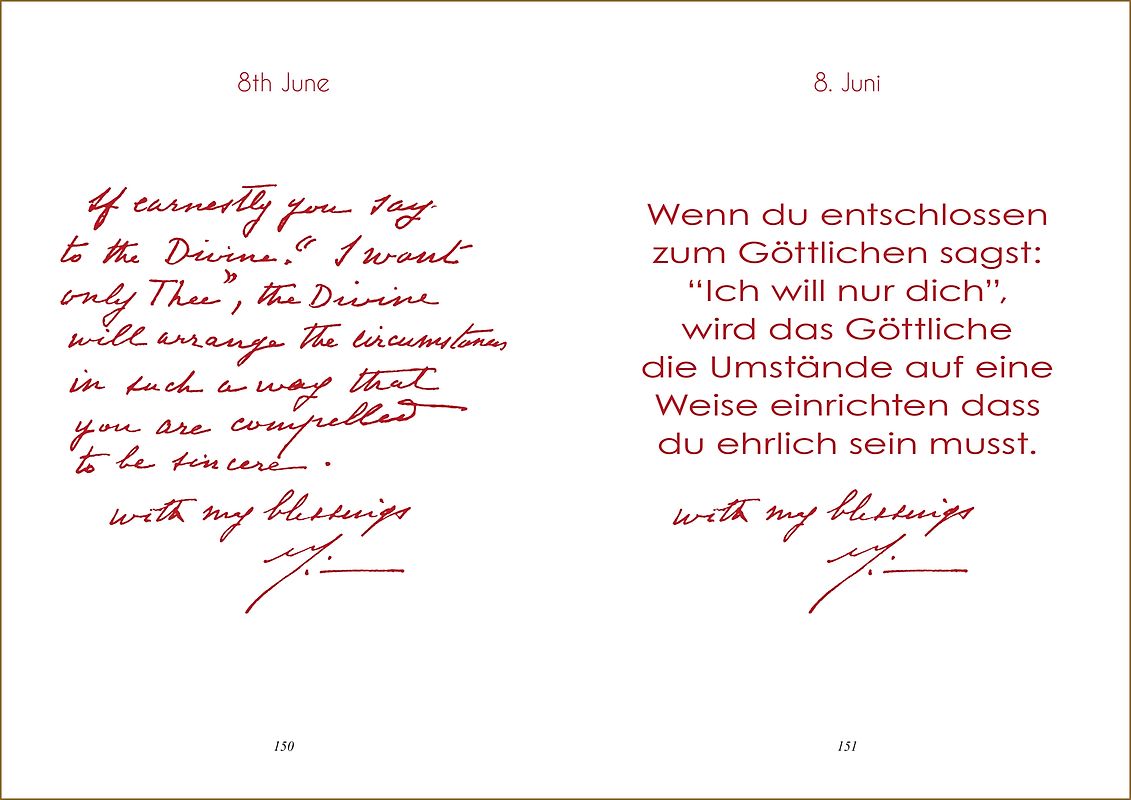 8th June
If earnestly you say
to the Divine: “I want
only Thee”, the Divine
will arrange the circumstances
in such a way that
you are compelled
to be sincere.
with my blessings
150
8. Juni
Wenn du entschlossen
zum Göttlichen sagst:
“Ich will nur dich”,
wird das Göttliche
die Umstände auf eine
Weise einrichten dass
du ehrlich sein musst.
with my blessings
151